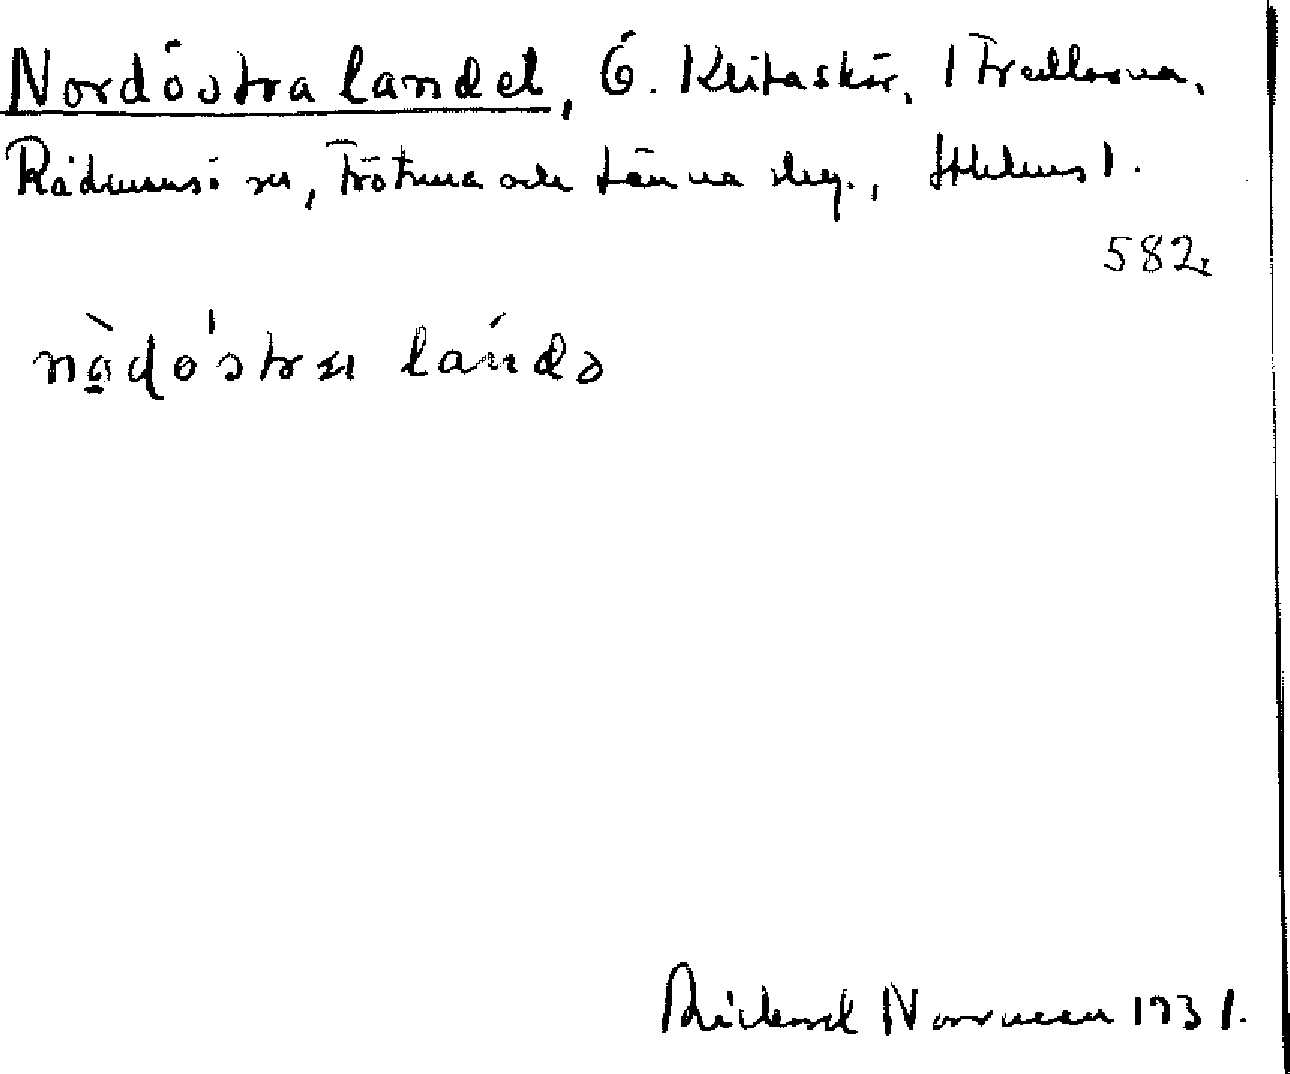 Nordöstra landet, Ö. Klitaskär,
Rådmansö sn, Frötuna och Länna skg., Sthlms l.
582.
nò̱dó'stra lándə
Rickard Norrman 1931.